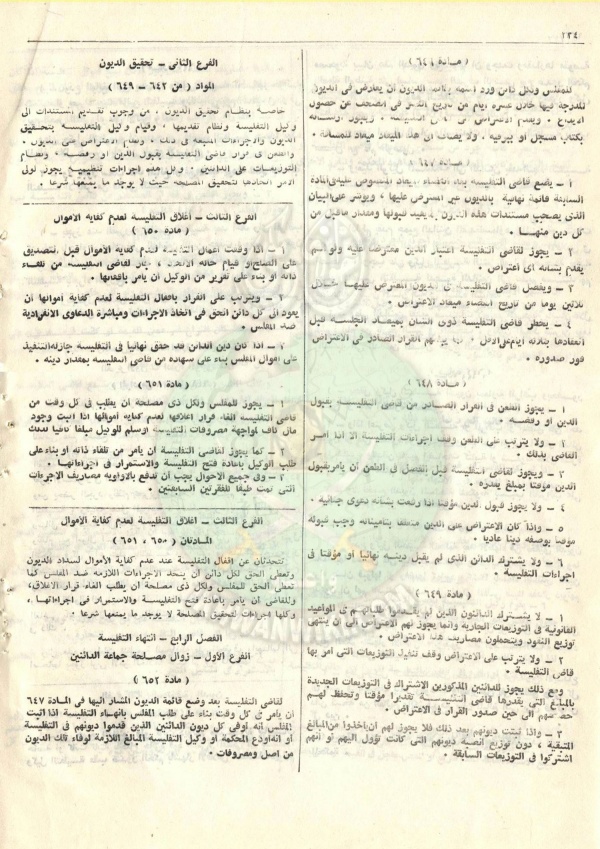 ٢٣٤
( مادة ٦٤٦ )
للمفلس ولكل دائن ورد اسمه بقائمة الديون أن يعارض في الديون
المدرجة فيها خلال عشرة أيام من تاريخ النشر في الصحف عن حصول
الايداع ، ويقدم الاعتراض في التفليسة ، ويجوز ارساله
بكتاب مسجل أو ببرقية . ولا يضاف إلى هذا الميعاد ميعاد للمسافة .
( مادة ٦٤٧ )
١ - يضع قاضي التفليسة بعد انقضاء الميعاد المنصوص عليه في المادة
السابقة قائمة نهائية بالديون غير المعترض عليها ، ويؤشر على البيان
الذي يصحب مستندات هذه الديون بقبولها ومقدار ما قبل من
كل دين منهـا .
٢ - يجوز لقاضي التفليسة اعتبار الدين معترضا عليه ولو لم
يقدم بشأنه أي اعتراض .
٣ - ويفصل قاضي التفليسة في الديون المعترض عليها خلال
ثلاثين يوما من تاريخ انقضاء ميعاد الاعتراض .
٤ - يخطر قاضي التفليسة ذوي الشأن بميعاد الجلسة قبل
انعقادها بثلاثة أيام على الأقل ، كما يبلغهم القرار الصادر في الاعتراض
فور صدوره .
( مادة ٦٤٨ )
١ - يجوز الطعن في القرار الصادر من قاضي التفليسة بقبول
الدين أو رفضه .
٢ - ولا يترتب على الطعن وقف اجراءات التفليسة الا اذا أمر
القاضي بذلك .
٣ - ويجوز لقاضي التفليسة قبل الفصل في الطعن أن يأمر بقبول
الدين مؤقتا بمبلغ يقدره .
٤ - ولا يجوز قبول الدين مؤقتا اذا رفعت بشأنه دعوى جنائية .
٥ - واذا كان الاعتراض على الدين متعلقا بتأميناته وجب قبوله
مؤقتا بوصفه دينا عاديا .
٦ - ولا يشترك الدائن الذي لم يقبل دينـه نهائيا أو مؤقتا في
اجراءات التفليسة .
( مادة ٦٤٩ )
١ - لا يشترك الدائنون الذين لم يقدموا طلباتهم في المواعيد
القانونية في التوزيعات الجارية وانما يجوز لهم الاعتراض الى أن ينتهي
توزيع النقود ويتحملون مصاريف هذا الاعتراض .
٢ - ولا يترتب على الاعتراض وقف تنفيذ التوزيعات التي أمر بها
قاضي التفليسة .
ومع ذلك يجوز للدائنين المذكورين الاشتراك في التوزيعات الجديدة
بالمبالغ التي يقدرها قاضي التفليسة تقديرا مؤقتا وتحفظ لهم
حصصهم الى حين صدور القرار في الاعتراض .
٣ - واذا ثبتت ديونهم بعد ذلك فلا يجوز لهم أن يأخذوا من المبالغ
المتبقية ، دون توزيع أنصبة ديونهم التي كانت تؤول اليهم لو أنهم
اشتركوا في التوزيعات السابقة .
الفرع الثاني - تحقيق الديون
المواد ( من ٦٤٢ - ٦٤٩ )
خاصـة بنظام تحقيق الديون ، من وجوب تقديم المستندات الى
وكيل التفليسة ونظام تقديمها ، وقيام وكيل التفليسة بتحقيق
الديون والاجراءات المتبعة في ذلك ، ونظام الاعتراض على الديون ،
والطعن في قرار قاضي التفليسة بقبول الدين أو رفضه ، ونظام
التوزيعات على الدائنين ، وكل هذه اجراءات تنظيمية يجوز لولي
الأمر اتخاذها لتحقيق المصلحة حيث لا يوجد ما يمنعها شرعا .
الفرع الثالث - اغلاق التفليسة لعدم كفاية الأموال
( مادة ٦٥٠ )
١ - اذا وقفت أعمال التفليسة لعدم كفاية الأموال قبل التصديق
على الصلح أو قيام حالة الاتحاد ، جاز لقاضي التفليسة من تلقاء
ذاته أو بناء على تقرير من الوكيل أن يأمر باقفالها .
٢ - ويترتب على القرار باقفال التفليسة لعدم كفاية أموالها أن
يعود الى كل دائن الحق في اتخاذ الاجراءات ومباشرة الدعاوى الانفرادية
ضد المفلس .
٣ - اذا كان دين الدائن قد حقق نهائيا في التفليسة جاز له التنفيذ
على أموال المفلس بناء على شهادة من قاضي التفليسة بمقدار دينه .
( مادة ٦٥١ )
١ - يجوز للمفلس ولكل ذي مصلحة أن يطلب في كل وقت من
قاضي التفليسة الغاء قرار اغلاقها لعدم كفاية أموالها اذا اثبت وجود
مال كاف لمواجهة مصروفات التفليسة أو سلم للوكيل مبلغا كافيا لذلك
٢ - كما يجوز لقاضي التفليسة أن يأمر من تلقاء ذاته أو بناء على
طلب الوكيل باعادة فتح التفليسة والاستمرار في اجراءاتهـا .
٣ - وفي جميع الأحوال يجب أن تدفع بالأولوية مصاريف الاجراءات
التي تمت طبقا للفقرتين السابقتين .
الفرع الثالث - اغلاق التفليسة لعدم كفاية الأموال
المـادتـان ( ٦٥٠ ، ٦٥١ )
تتحدثان عن اقفال التفليسة عند عدم كفاية الأموال لسداد الديون
وتعطى الحق لكل دائن أن يتخذ الاجراءات اللازمة ضد المفلس كما
تعطى الحق للمفلس ولكل ذي مصلحة أن يطلب الغاء قرار الاغلاق،
وللقاضي أن يأمر باعادة فتح التفليسـة والاستمرار في اجراءاتهـا ،
وكلها اجراءات لتحقيق المصلحة لا يوجد ما يمنعها شرعا .
الفصل الرابع - انتهاء التفليسة
الفرع الأول - زوال مصلحة جماعة الدائنين
( مادة ٦٥٢ )
لقاضي التفليسة بعد وضع قائمة الديون المشار اليها في المـادة ٦٤٧
أن يأمر في كل وقت بناء على طلب المفلس بانهـاء التفليسة اذا اثبت
المفلس أنه أوفى كل ديون الدائنين الذين قدموا ديونهم في التفليسة
أو أنه أودع المحكمة أو وكيل التفليسة المبالغ اللازمة لوفاء تلك الديون
من أصل ومصروفات .